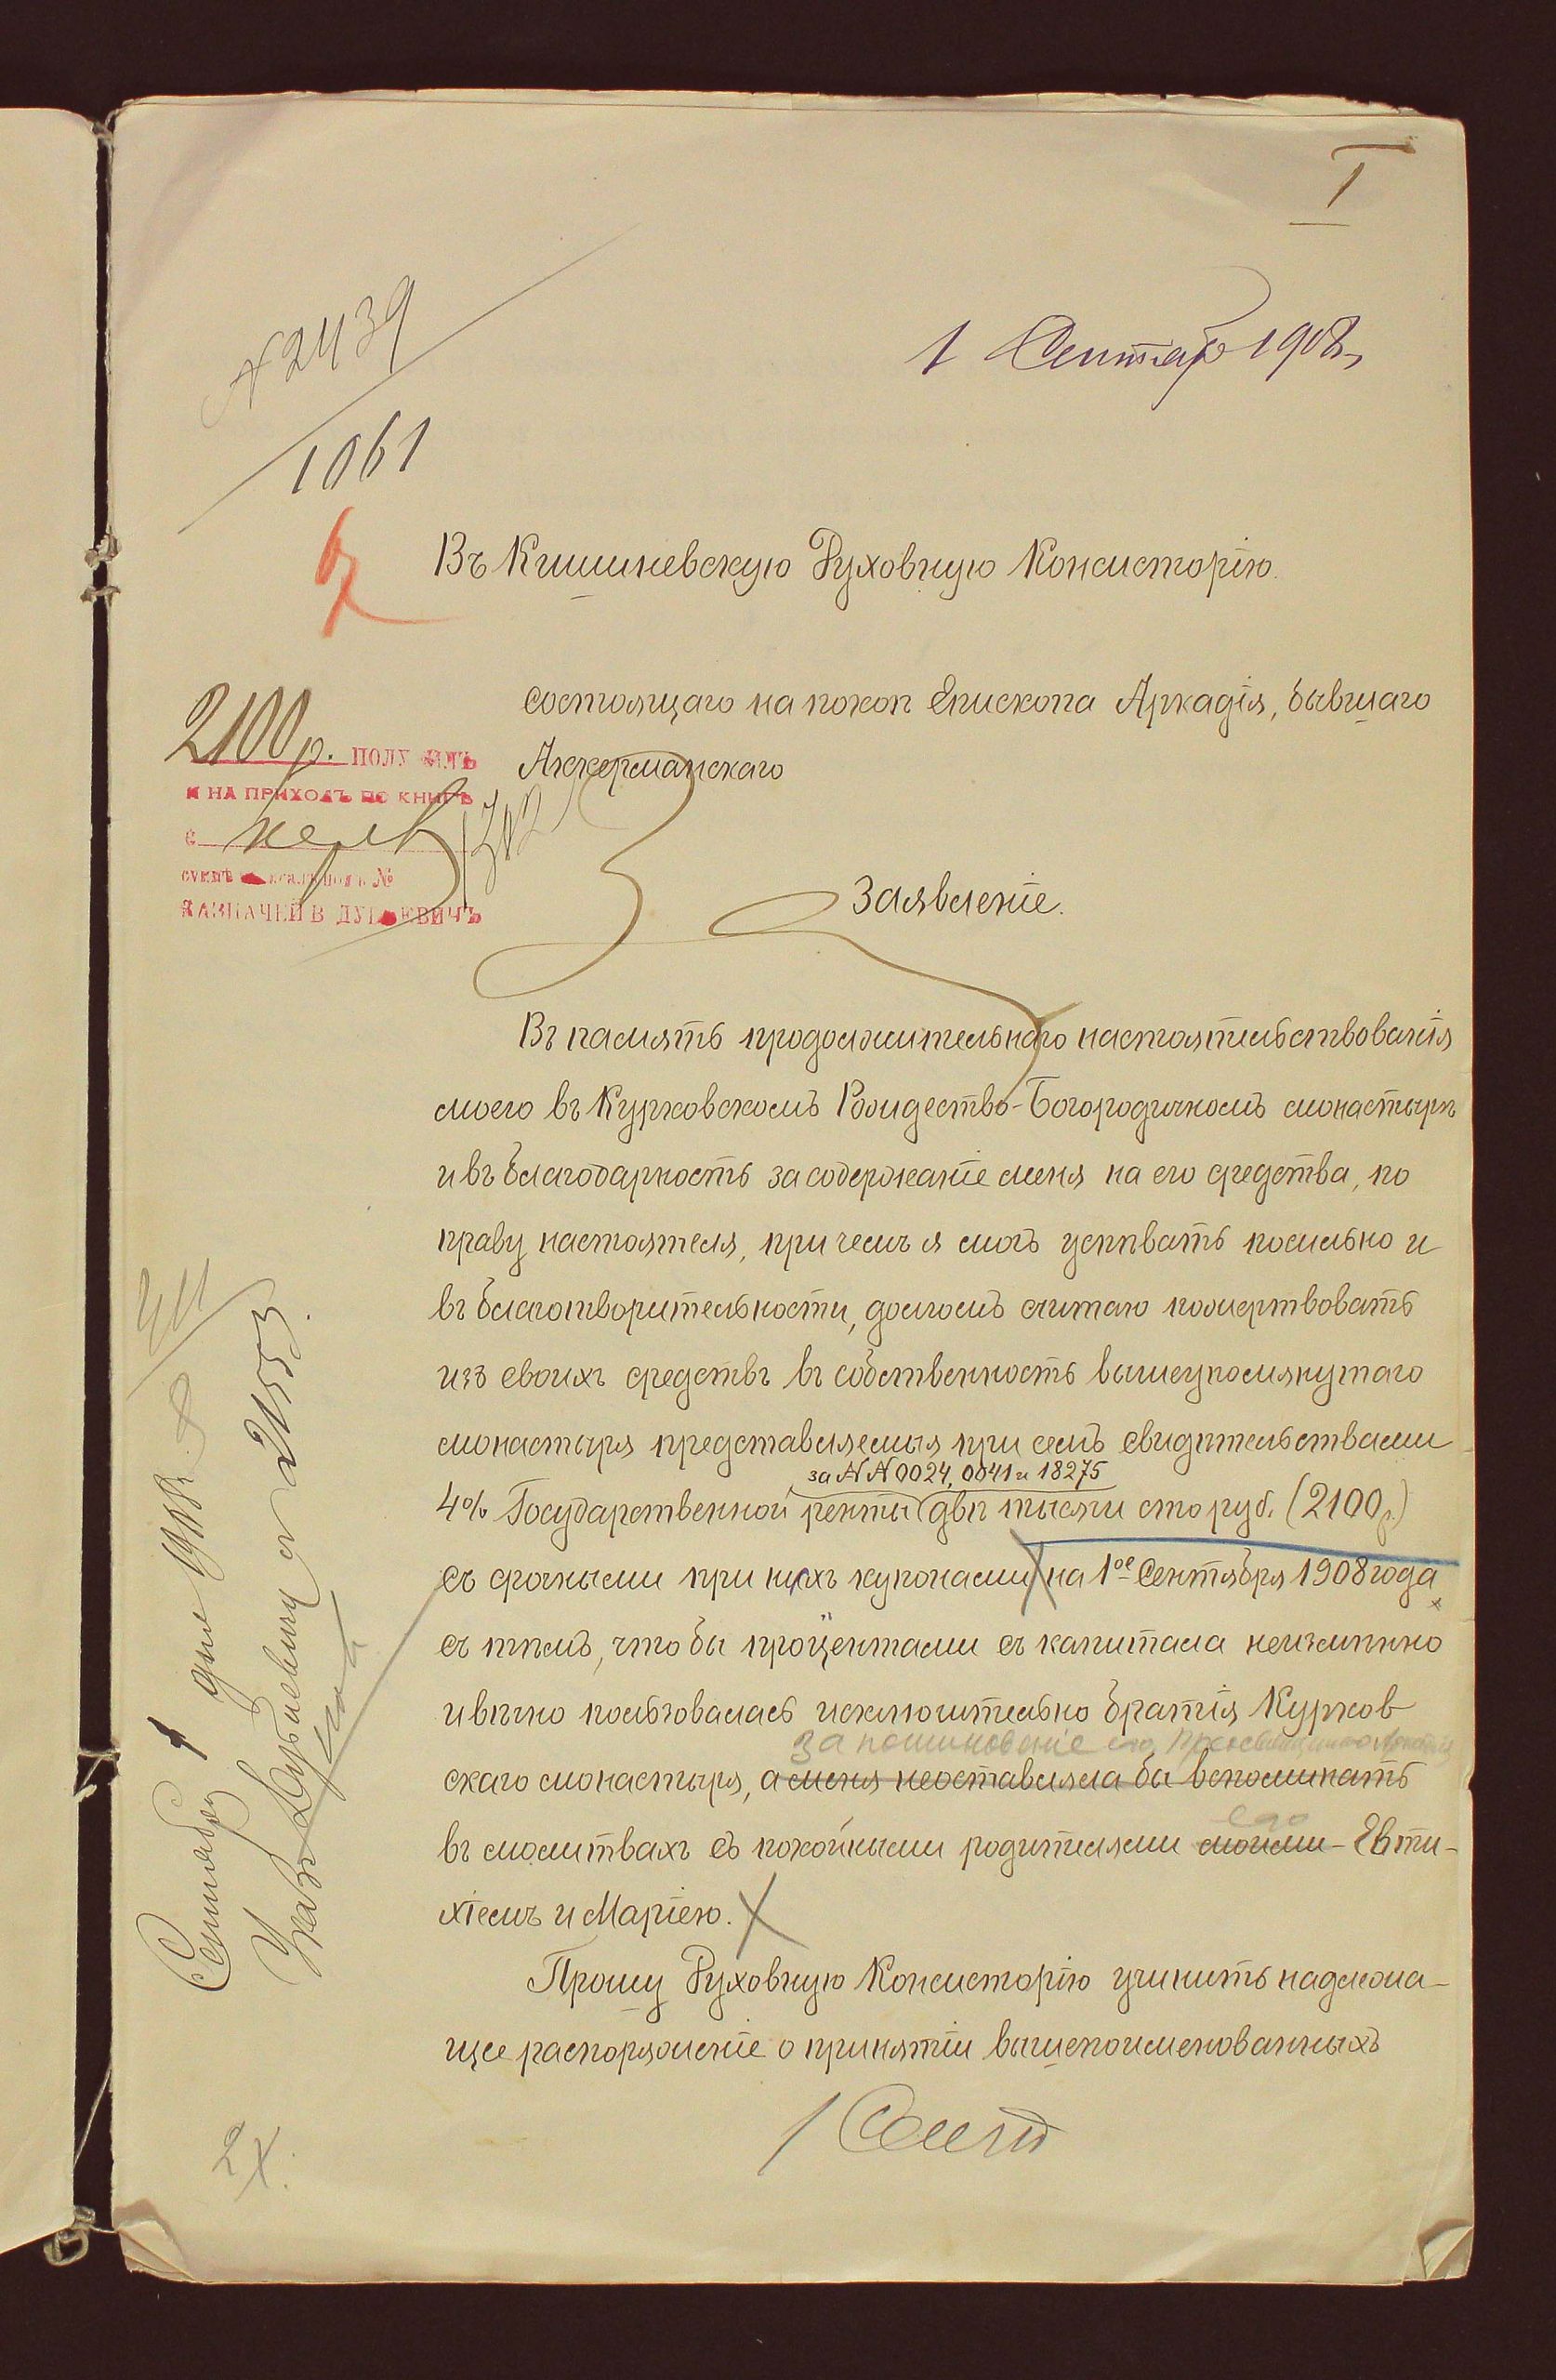 1
1 Сентяб 1908 г.
№ 2439
1061
Въ Кишиневскую Духовную Консисторію.
состоящаго на покоѣ Епископа Аркадія, бывшаго
Аккерманскаго
2100 р. ПОЛУЧИЛЪ
И НА ПРИХОДЪ ПО КНИГѢ
№
КАЗНАЧЕЙ В ДУБНЕВИЧЪ
Заявленіе.
Въ память продолжительнаго настоятельствованія
моего въ Курковскомъ Рождество-Богородичномъ монастырѣ
и въ благодарность за содержаніе меня на его средства, по
праву настоятеля, при чемъ я могъ успѣвать посильно и
въ благотворительности, долгомъ считаю пожертвовать
изъ своихъ средствъ въ собственность вышеупомянутаго
монастыря представляемыя при семъ свидѣтельствами
за №№ 0024, 0041 и 18275
4% Государственной ренты двѣ тысячи сто руб. (2100 р.)
съ срочными при нихъ купонами на 1ое Сентября 1908 года
съ тѣмъ, что бы процентами съ капитала неизмѣнно
и вѣчно пользовалась исключительно братія Курков
за поминовеніе его Преосвященно
скаго монастыря, а меня не оставляла бы вспоминать
его
въ молитвахъ съ покойными родителями моими - Евти-
хіемъ и Маріею.
Прошу Духовную Консисторію учинить надлежа-
щее распоряженіе о принятіи вышепоименованныхъ
Сентября 1 дня 1908 г.
2155
1 Сент
2